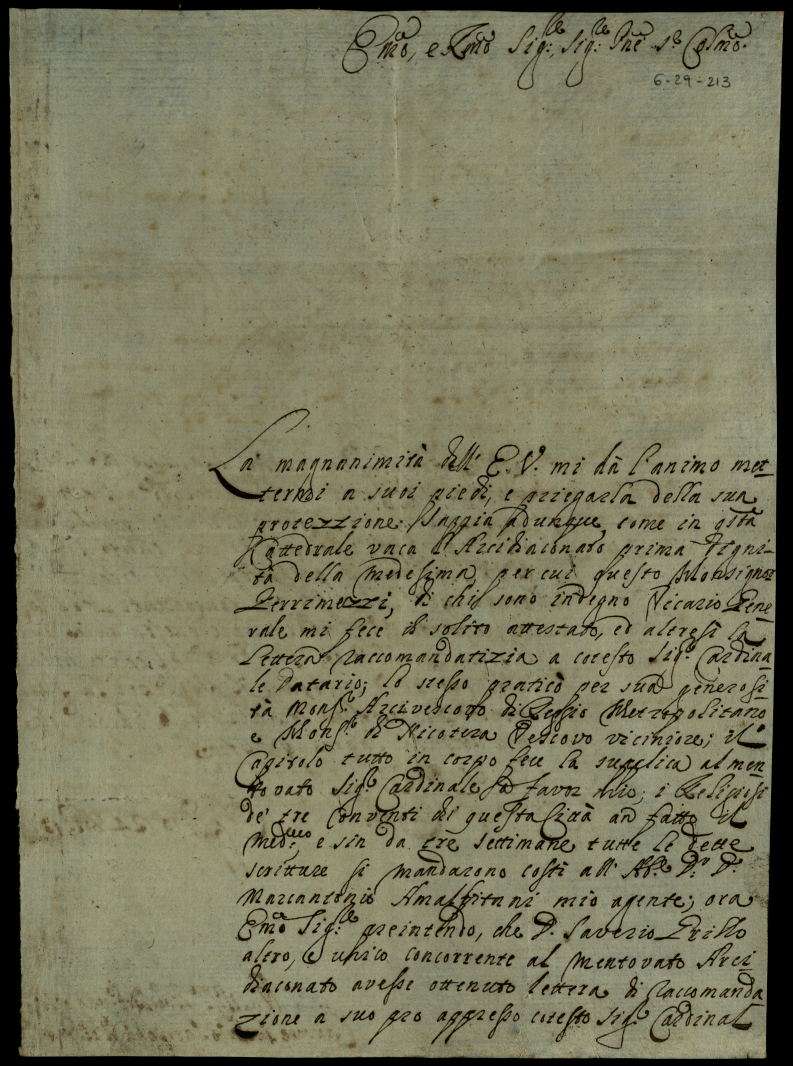 Emo, e Rmo Sig:re, Sig:re Pne s:e Colmo.
6-29-213
La magnanimità dell' E.V. mi dà l'animo met-
termi a suoi piedi, e priegarla della sua
protezzione. Sappia adunque, come in qstà
Cattedrale vaca l'Arcidiaconato prima Digni-
tà della medesima, per cui questo Monsignor
Perrimezzi, di chi sono indegno Vicario Gene-
rale mi fece il solito attestato, ed altresì la
lettera raccomandatizia a cotesto Sig:r Cardina-
le Datario; lo stesso praticò per sua generosi-
tà Mons:r Arcivescovo di Reggio Metropolitano
e Mons:r di Nicotera Vescovo viciniore; il
Capitolo tutto in corpo fece la supplica al men-
tovato Sig:r Cardinale a favor mio; i Religiosi
de' tre Conventi di questa Città an fatto il
med:mo, e sin da trè settimane tutte le dette
scritture si mandarono costì all' Ab:e D:r D:
Marcantonio Amalfitani mio agente; ora
Emo Sig:re preintendo, che D. Saverio Grillo
altro, e unico concorrente al mentovato Arci-
diaconato avesse ottenuto lettera di raccomanda-
zione a suo pro appresso cotesto Sig:r Cardinal